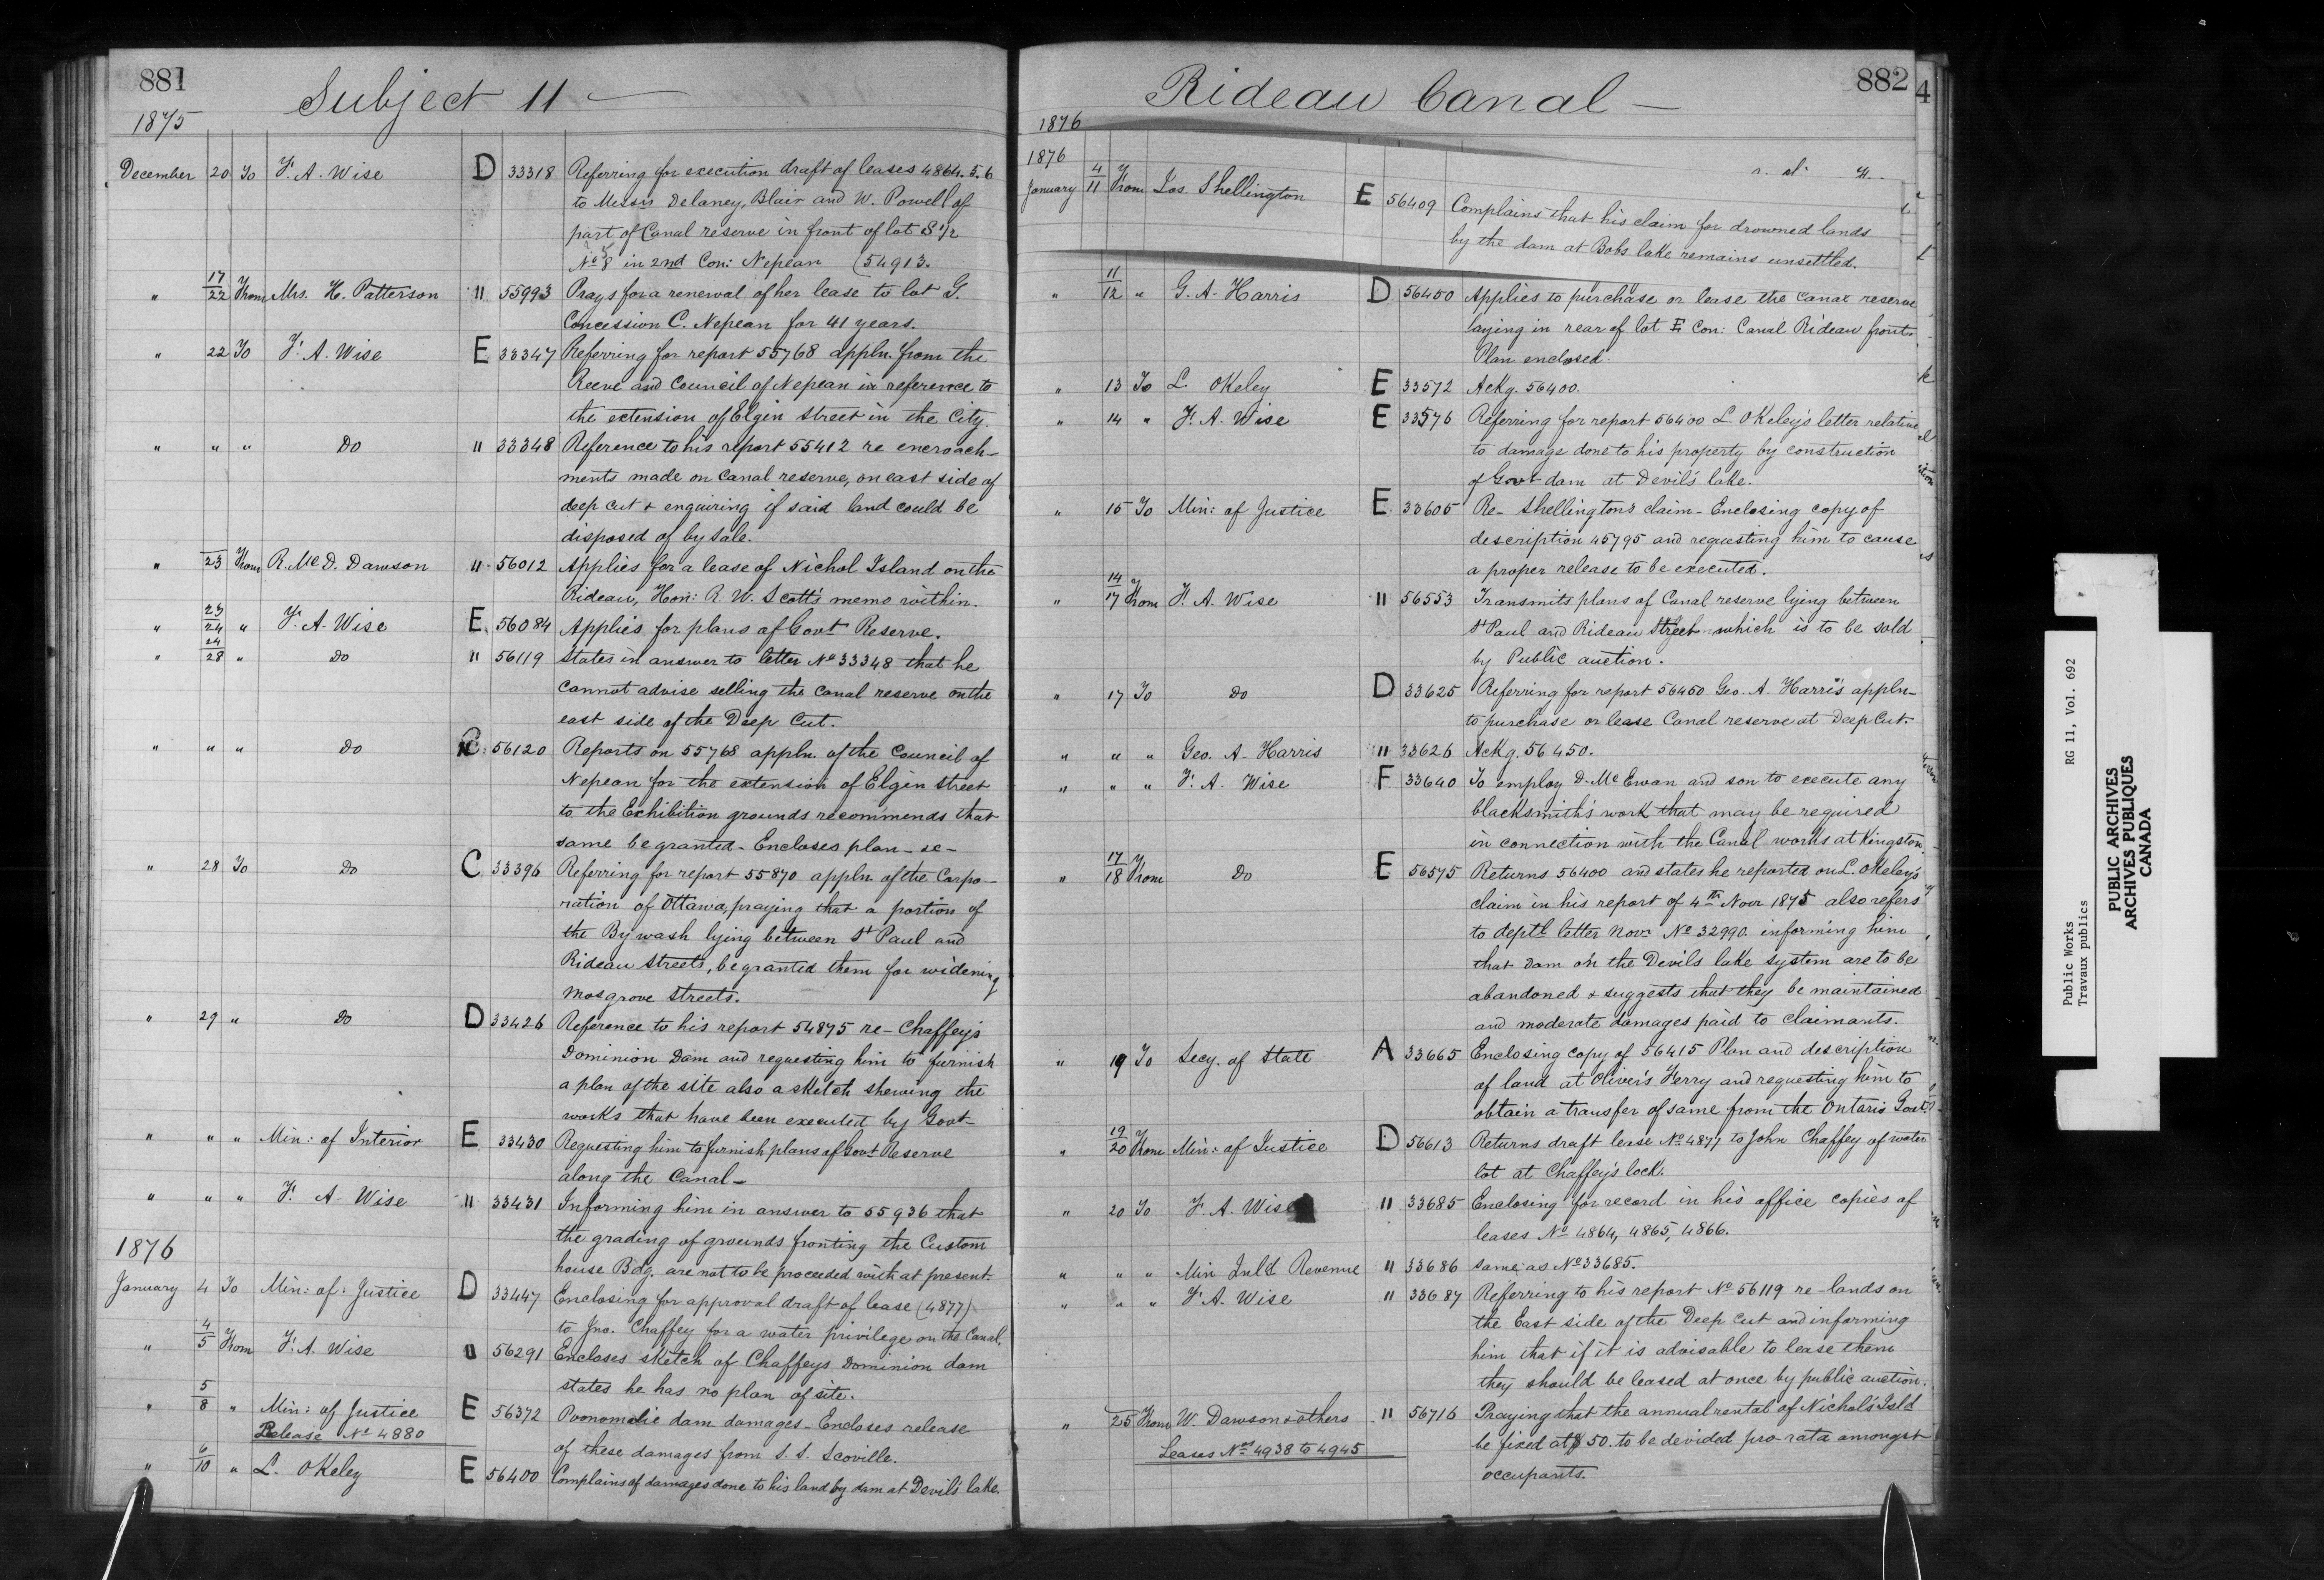 881
Subject 11
1875
December 20 To F. A. Wise D 33318 Referring for execution draft of leases 4864.5.6
to Messrs Delaney, Blair and W. Powell of
part of Canal reserve in front of lot S ½
No 8 in 2nd Con: Nepean (54913.
" 17/22 From Mrs. H. Patterson " 55993 Prays for a renewal of her lease to lot G.
Concession C. Nepean for 41 years.
" 22 To F. A. Wise E 33347 Referring for report 55768 appln. from the
Reeve and Council of Nepean in reference to
the extension of Elgin Street in the City.
" " " Do " 33348 Reference to his report 55412 re encroach-
ments made on Canal reserve, on east side of
deep cut & enquiring if said land could be
disposed of by sale.
" 23 From R. McD. Dawson " 56012 Applies for a lease of Nichol Island on the
Rideau, Hon: R. W. Scott's memo within.
" 23/24 " F. A. Wise E. 56084 Applies for plans of Govt Reserve.
" 24/28 " Do " 56119 States in answer to letter No 33348 that he
cannot advise selling the canal reserve on the
east side of the Deep Cut.
" " " Do C. 56120 Reports on 55768 appln. of the Council of
Nepean for the extension of Elgin street
to the Exhibition grounds recommends that
same be granted - Encloses plan - se -
" 28 To Do C 33396 Referring for report 55870 appln. of the Corpo-
ration of Ottawa, praying that a portion of
the By wash lying between St Paul and
Rideau Streets, be granted them for widening
Mosgrove Streets.
" 29 " Do D 33426 Reference to his report 54875 re - Chaffey's
Dominion Dam and requesting him to furnish
a plan of the site also a sketch shewing the
works that have been executed by Govt-
" " " Min: of Interior E 33430 Requesting him to furnish plans of Govt Reserve
along the Canal -
" " " F. A. Wise " 33431 Informing him in answer to 55936 that
the grading of grounds fronting the Custom
house Bdg. are not to be proceeded with at present.
1876
January 4 To Min: of: Justice D 33447 Enclosing for approval draft of lease (4877)
to Jno. Chaffey for a water privilege on the Canal.
" 4/5 From F. A. Wise " 56291 Encloses sketch of Chaffeys Dominion dam
states he has no plan of site.
" 5/8 " Min: of Justice E 56372 Poonomolie dam damages - Encloses release
Release No 4880
of these damages from S. S. Scoville.
" 6/10 " L. OKeley E 56400 Complains of damages done to his land by dam at Devil's lake.
882
Rideau Canal
4
1876
1876
January 4/11 From Jos. Shellington E 56409 Complains that his claim for drowned lands
by the dam at Bobs lake remains unsettled.
" 11/12 " G. A. Harris D 56450 Applies to purchase or lease the Canal reserve
laying in rear of lot E Con: Canal Rideau front.
Plan enclosed.
" 13 To L. OKeley E 33572 Ackg. 56400.
" 14 " F. A. Wise E 33576 Referring for report 56400 L. OKeley's letter relative
to damage done to his property by construction
of Govt dam at Devil's lake.
" 15 To Min: of Justice E 33605 Re - Shellington's claim - Enclosing copy of
description 45795 and requesting him to cause
a proper release to be executed.
" 14/17 From F. A. Wise " 56553 Transmits plans of Canal reserve lying between
St Paul and Rideau Street which is to be sold
by Public auction.
" 17 To Do D 33625 Referring for report 56450 Geo. A. Harris appln-
to purchase or lease Canal reserve at Deep Cut.
" " " Geo. A. Harris " 33626 Ackg. 56450.
" " " F. A. Wise F 33640 To employ D. McEwan and son to execute any
blacksmith's work that may be required
in connection with the Canal works at Kingston.
" 17/18 From Do E 56575 Returns 56400 and states he reported on L. OKeley's
claim in his report of 4th Novr 1875 also refers
to deptl letter Novr No 32990 informing him
that Dam on the Devils lake system are to be
abandoned & suggests that they be maintained
and moderate damages paid to claimants.
" 19 To Secy. of State A 33665 Enclosing copy of 56415 Plan and description
of land at Oliver's Ferry and requesting him to
obtain a transfer of same from the Ontario Govt
" 19/20 From Min: of Justice D 56613 Returns draft lease No 4877 to John Chaffey of water
lot at Chaffey's lock.
" 20 To F. A. Wise " 33685 Enclosing for record in his office copies of
leases No 4864, 4865, 4866.
" " " Min Inld Revenue " 33686 same as No 33685.
" " " F. A. Wise " 33687 Referring to his report No 56119 re - lands on
the East side of the Deep Cut and informing
him that if it is advisable to lease them
they should be leased at once by public auction.
" 25 From W. Dawson & others " 56716 Praying that the annual rental of Nichol's Isld
be fixed at $50. to be devided pro-rata amongst
Leases Nos 4938 to 4945
occupants.
Public Works RG 11, Vol. 692
Travaux publics
PUBLIC ARCHIVES
ARCHIVES PUBLIQUES
CANADA